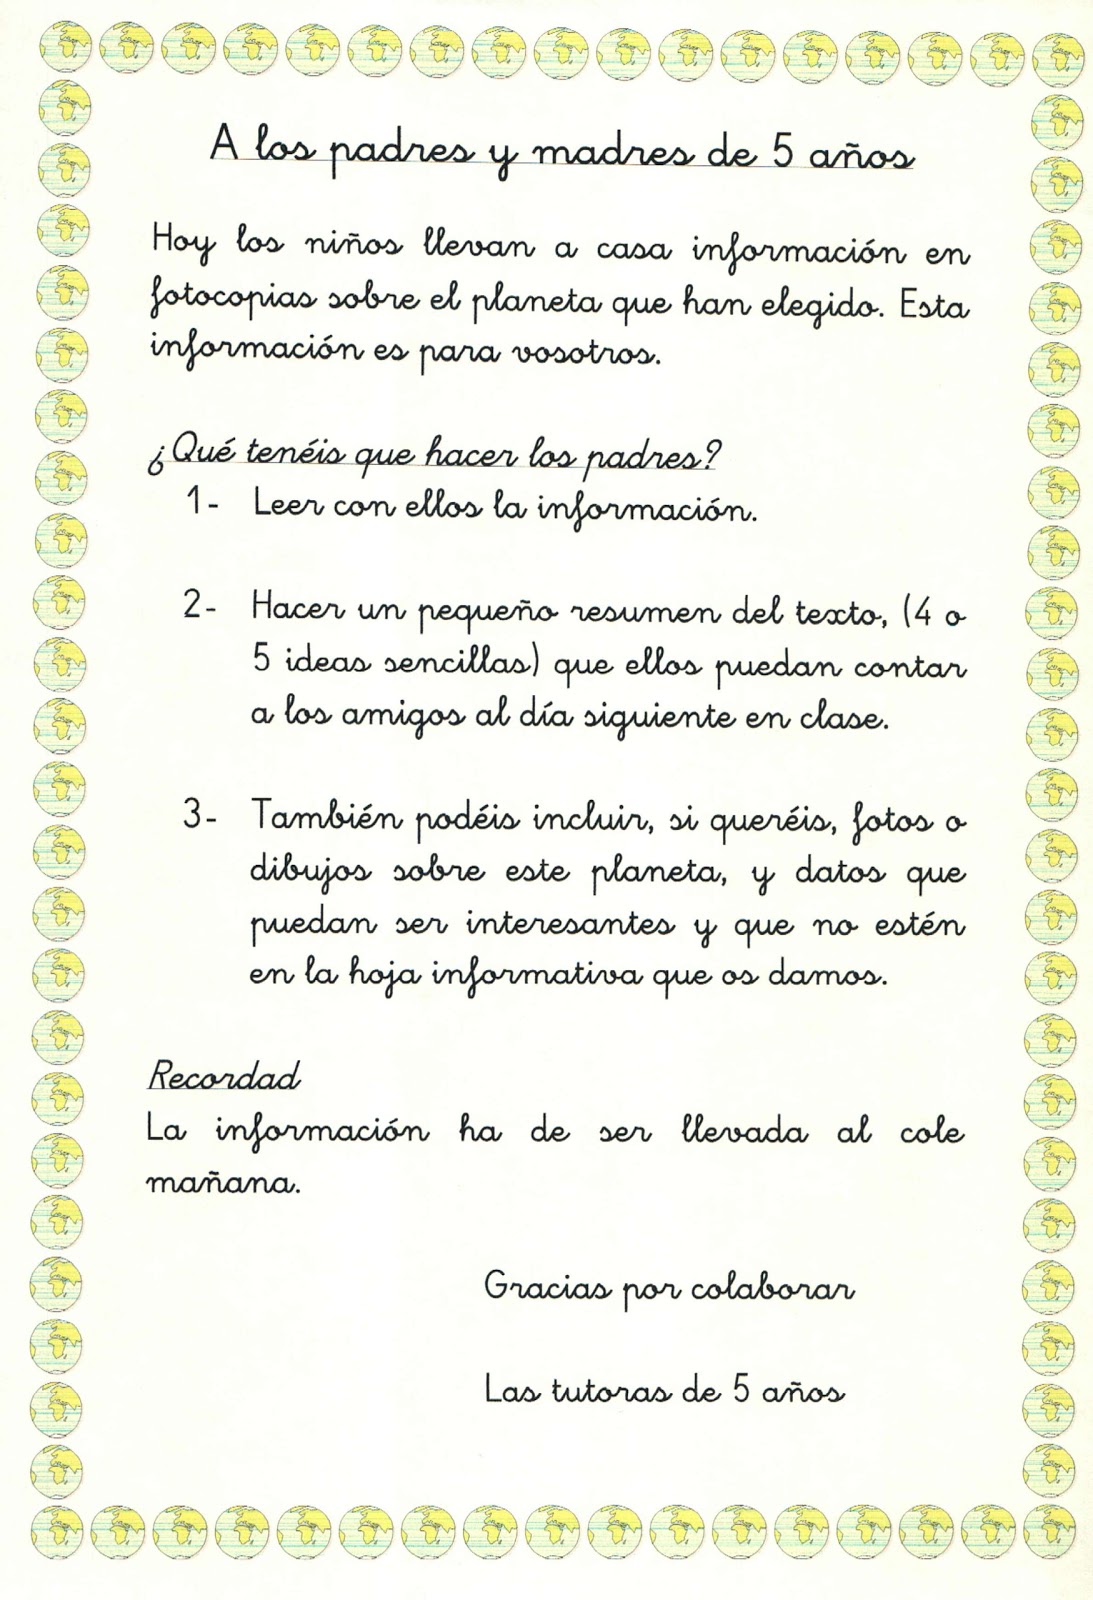 A los padres y madres de 5 años
Hoy los niños llevan a casa información en
fotocopias sobre el planeta que han elegido. Esta
información es para vosotros.
¿Qué tenéis que hacer los padres?
1- Leer con ellos la información.
2- Hacer un pequeño resumen del texto, (4 o
5 ideas sencillas) que ellos puedan contar
a los amigos al día siguiente en clase.
3- También podéis incluir, si queréis, fotos o
dibujos sobre este planeta, y datos que
puedan ser interesantes y que no estén
en la hoja informativa que os damos.
Recordad
La información ha de ser llevada al cole
mañana.
Gracias por colaborar
Las tutoras de 5 años